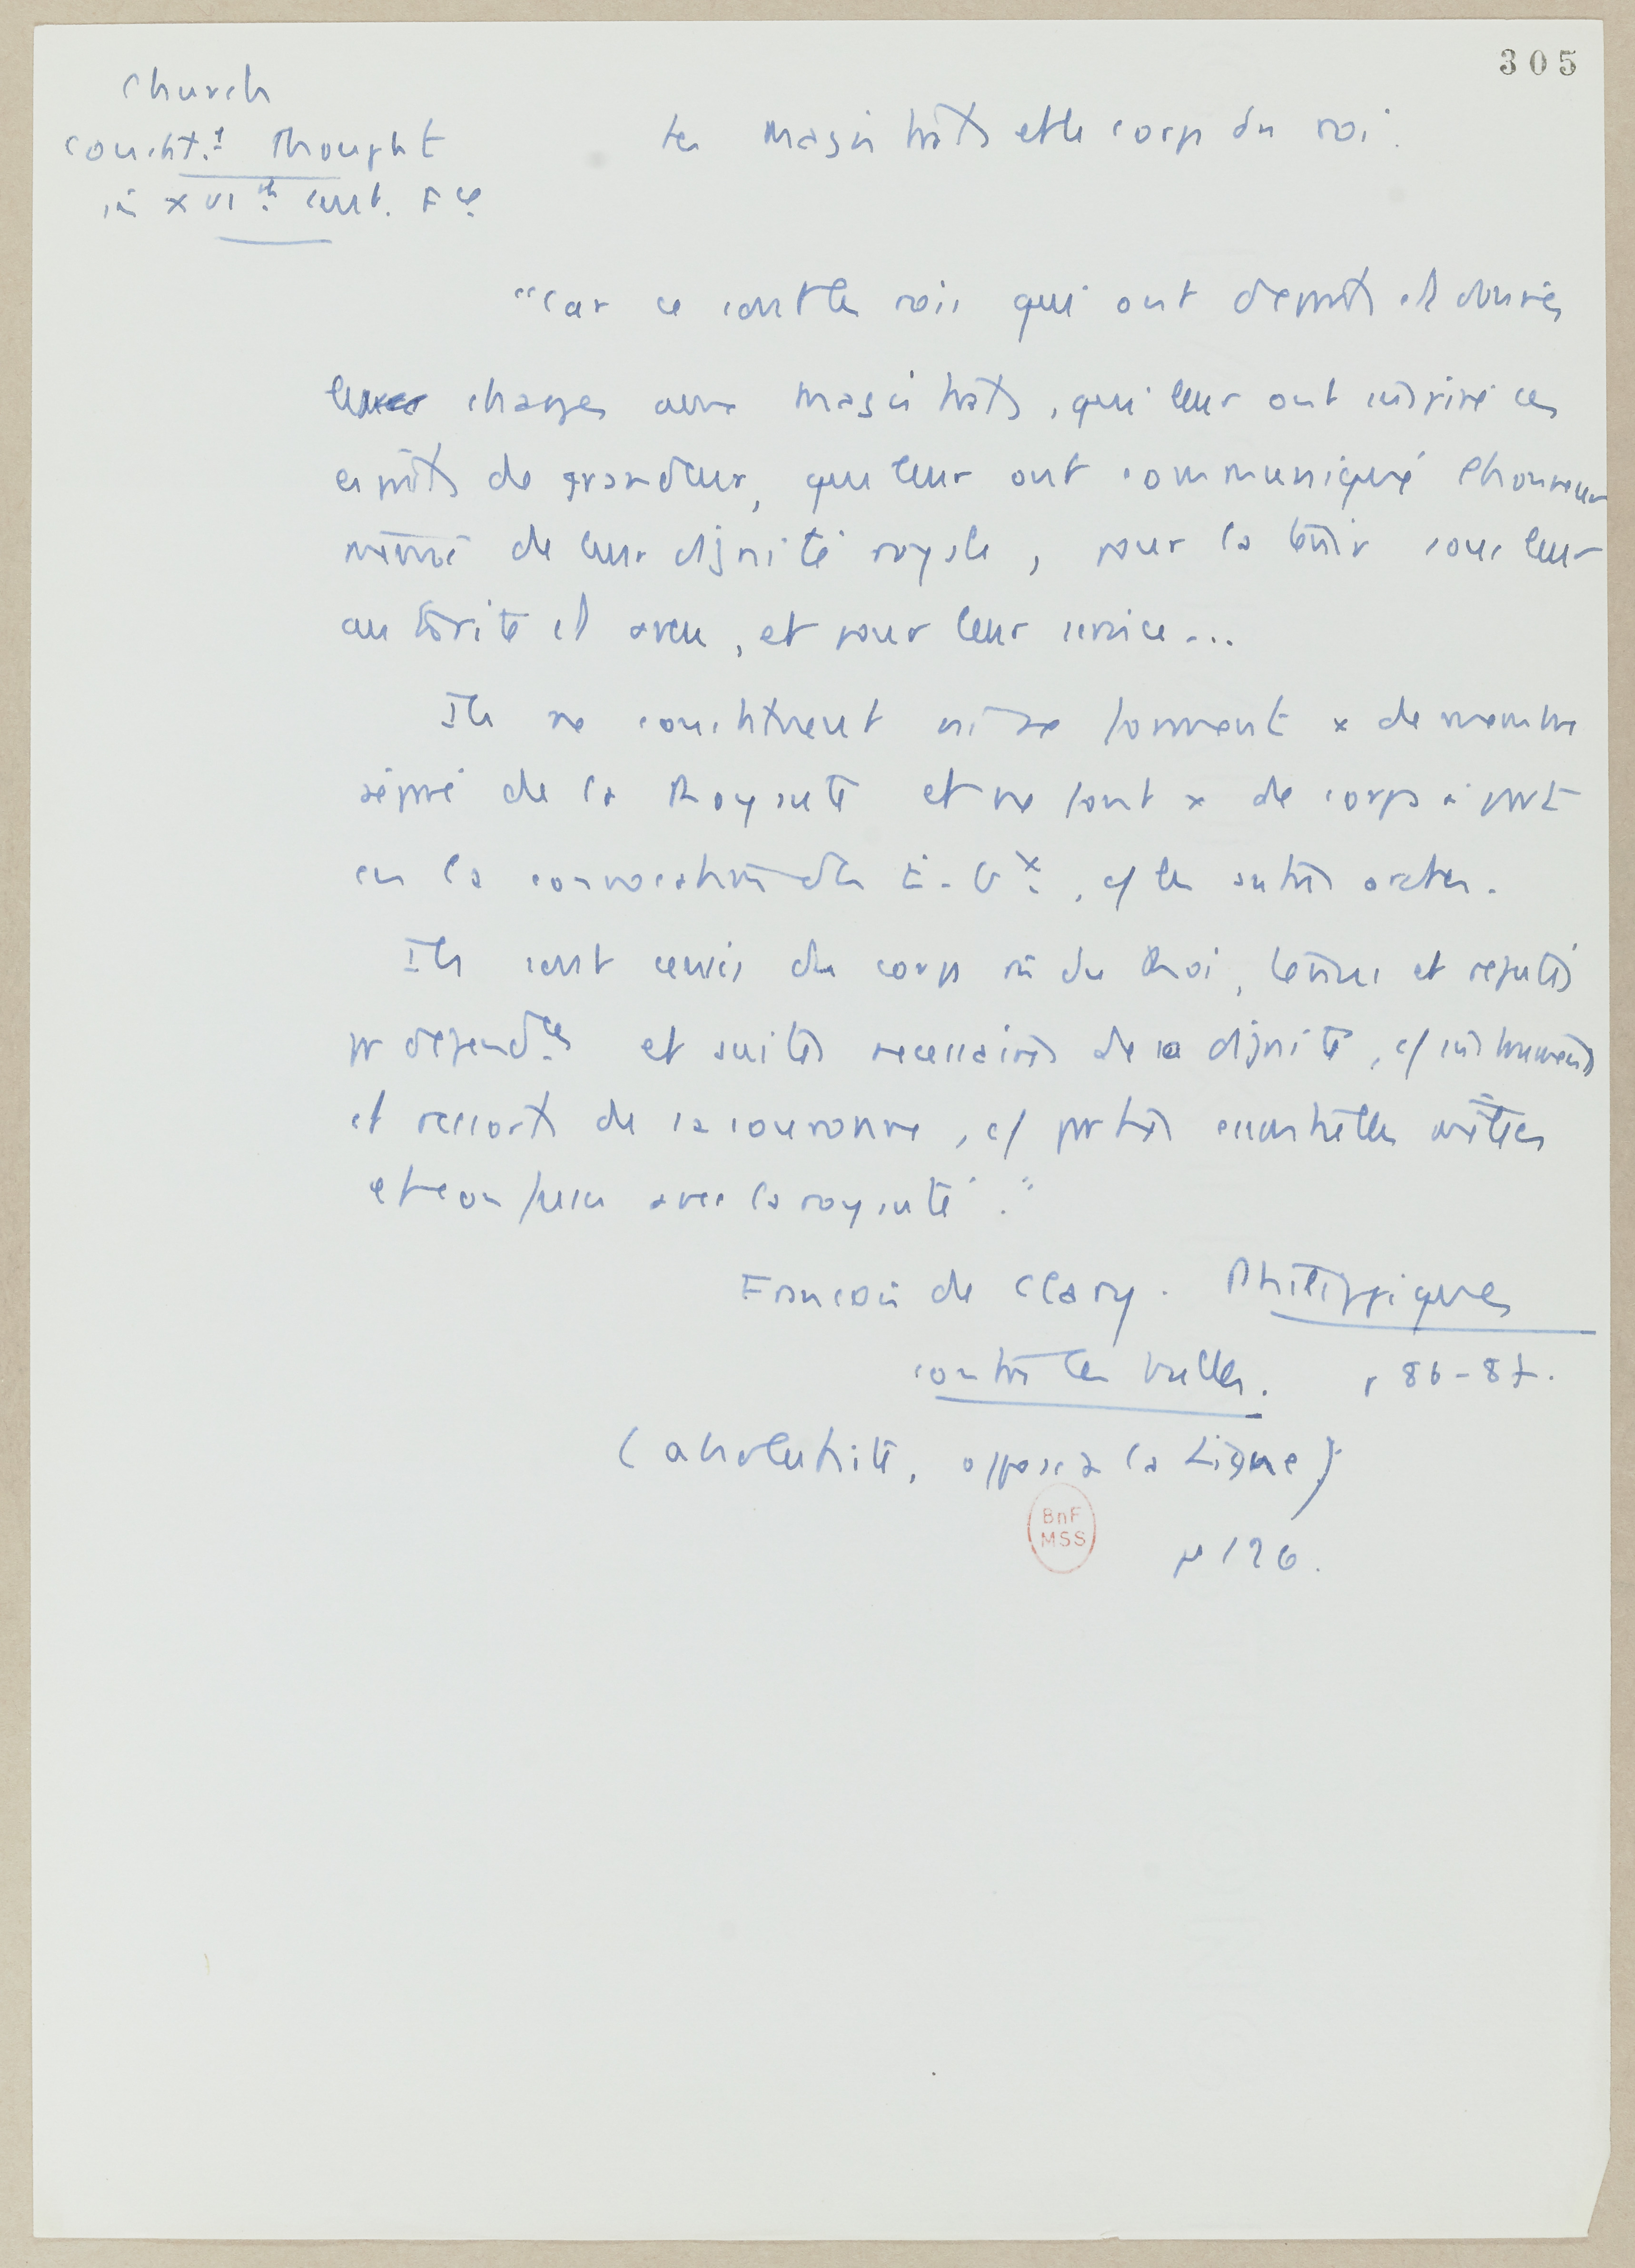 305
Church
constit.l thought
in XVIth cent. Fce
Les magistrats et le corps du roi.
"Car ce sont les rois qui ont départi et donné les
charges aux magistrats, qui leur ont inspiré ces
esprits de grandeur, qui leur ont communiqué l'honneur
même de leur dignité royale, pour la tenir sous leur
autorité et aveu, et pour leur service...
Ils ne constituent ni ne forment x de membre
séparé de la Royauté et ne font x de corps à part
en la convocation des E. Gx, c/ les autres ordres.
Ils sont censés du corps du Roi, tenus et réputés
pr dépendces et suites nécessaires de sa dignité, c/ instruments
et ressorts de sa couronne, c/ parties essentielles mêlées
et confuses avec la royauté."
François de Clary. Philippiques
contre les bulles. p 86-87.
(absolutiste, opposé à la Ligue)
p 126.
BnF
MSS